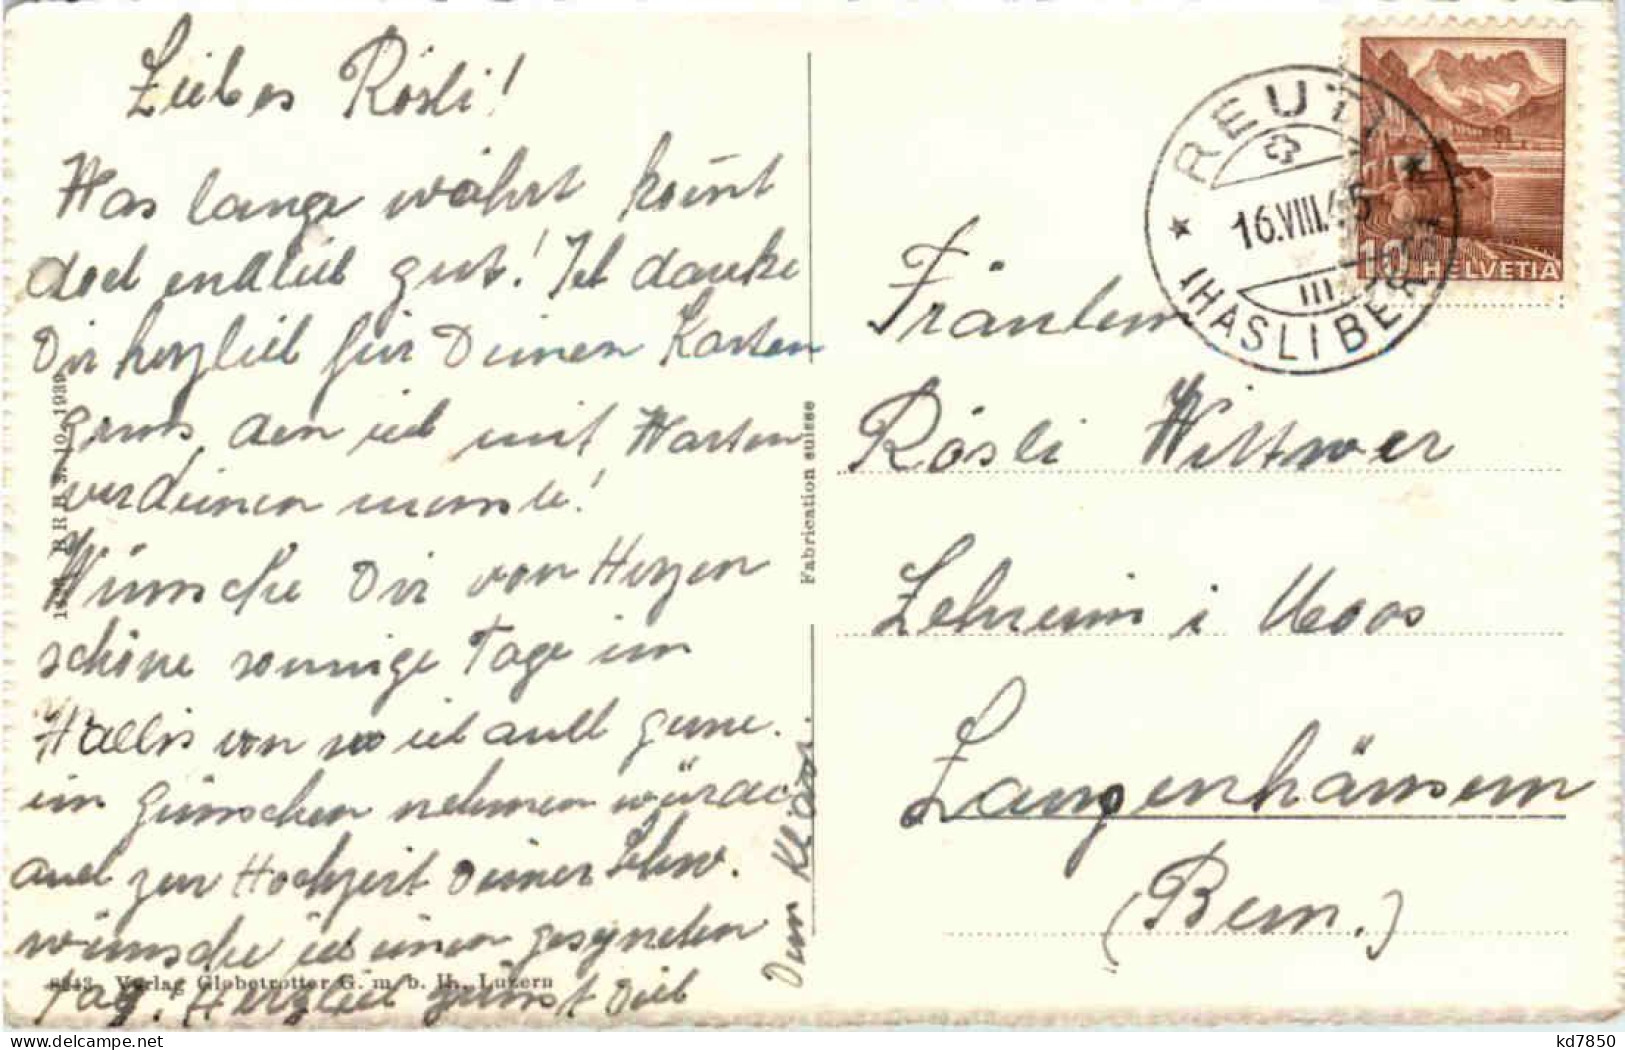 Liebes Rösli!
Was lange währt kömt
doch endlich gut! Ich danke
Dir herzlich für Deinen Karten
gruss, den ich mit Warten
verdienen musste!
Wünsche Dir von Herzen
schöne sonnige Tage im
Wallis von wo ich auch gerne.
ein grüsschen nehmen würde
auch zur Hochzeit Deiner Schw.
wünsche ich einen gesegneten
Tag. Herzlich grüsst Dich
Dein Klärli.
8243 Verlag Globetrotter G. m. b. H., Luzern
BRB 3. 10. 1939
Fabrication suisse
REUTI
16.VIII.45
(HASLIBERG)
10 HELVETIA
Fräulein
Rösli Wittwer
Lehrerin i Moos
Langenhäusern
(Bern.)
kd7850